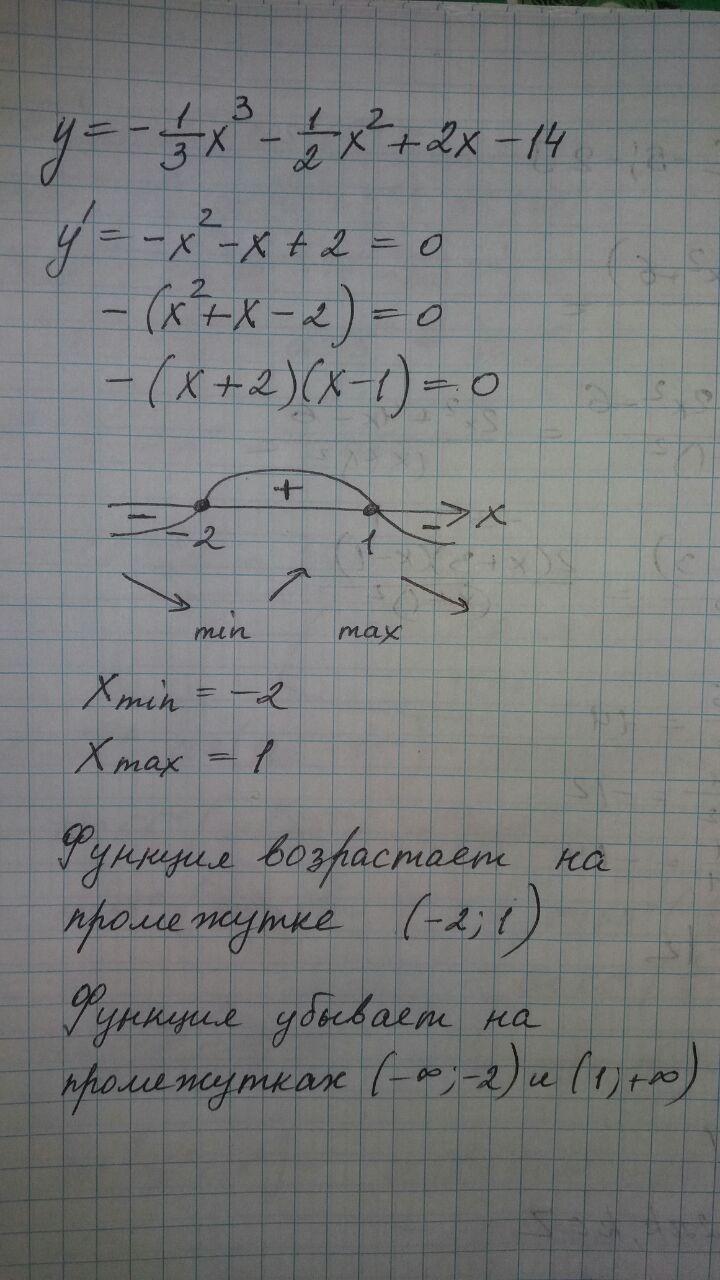 y = -1/3 x³ - 1/2 x² + 2x - 14
y' = -x² - x + 2 = 0
- (x² + x - 2) = 0
- (x + 2)(x - 1) = 0
- + - x
-2 1
min max
Xmin = -2
Xmax = 1
Функция возрастает на
промежутке (-2; 1)
Функция убывает на
промежутках (-∞; -2) и (1; +∞)